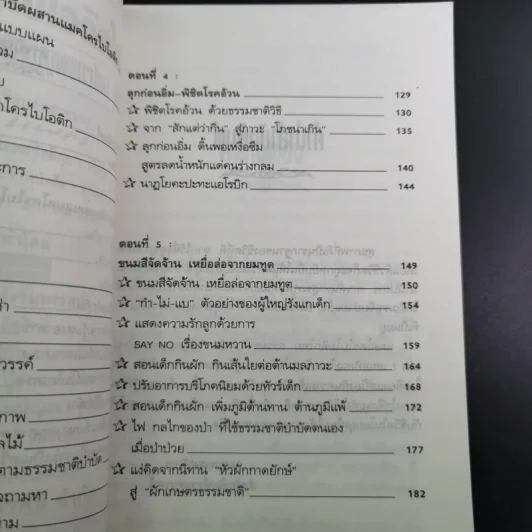 าบัดผสานแมคโครไบโอติก
แบบแผน
วม
ย
กโครไบโอติก
ะการ
ง่า
วรรค์
าภาพ
ลไม้
ตามธรรมชาติบำบัด
จถามหา
ตาม
ตอนที่ 4 :
ลุกก่อนอิ่ม-พิชิตโรคอ้วน 129
☆ พิชิตโรคอ้วน ด้วยธรรมชาติวิธี 130
☆ จาก "สักแต่ว่ากิน" สู่ภาวะ "โภชนาเกิน" 135
☆ ลุกก่อนอิ่ม ดิ้นพอเหงื่อซึม
สูตรลดน้ำหนักแด่คนร่างกลม 140
☆ นาฏโยคะปะทะแอโรบิก 144
ตอนที่ 5 :
ขนมสีจัดจ้าน เหยื่อล่อจากยมทูต 149
☆ ขนมสีจัดจ้าน เหยื่อล่อจากยมทูต 150
☆ "กำ-ไม่-แบ" ตัวอย่างของผู้ใหญ่รังแกเด็ก 154
☆ แสดงความรักลูกด้วยการ
SAY NO เรื่องขนมหวาน 159
☆ สอนเด็กกินผัก กินเส้นใยต่อต้านมลภาวะ 164
☆ ปรับอาการบริโภคนิยมด้วยทัวร์เด็ก 168
☆ สอนเด็กกินผัก เพิ่มภูมิต้านทาน ต้านภูมิแพ้ 172
☆ ไฟ กลไกของป่า ที่ใช้ธรรมชาติบำบัดตนเอง
เมื่อป่าป่วย 177
☆ แง่คิดจากนิทาน "หัวผักกาดยักษ์"
สู่ "ผักเกษตรธรรมชาติ" 182